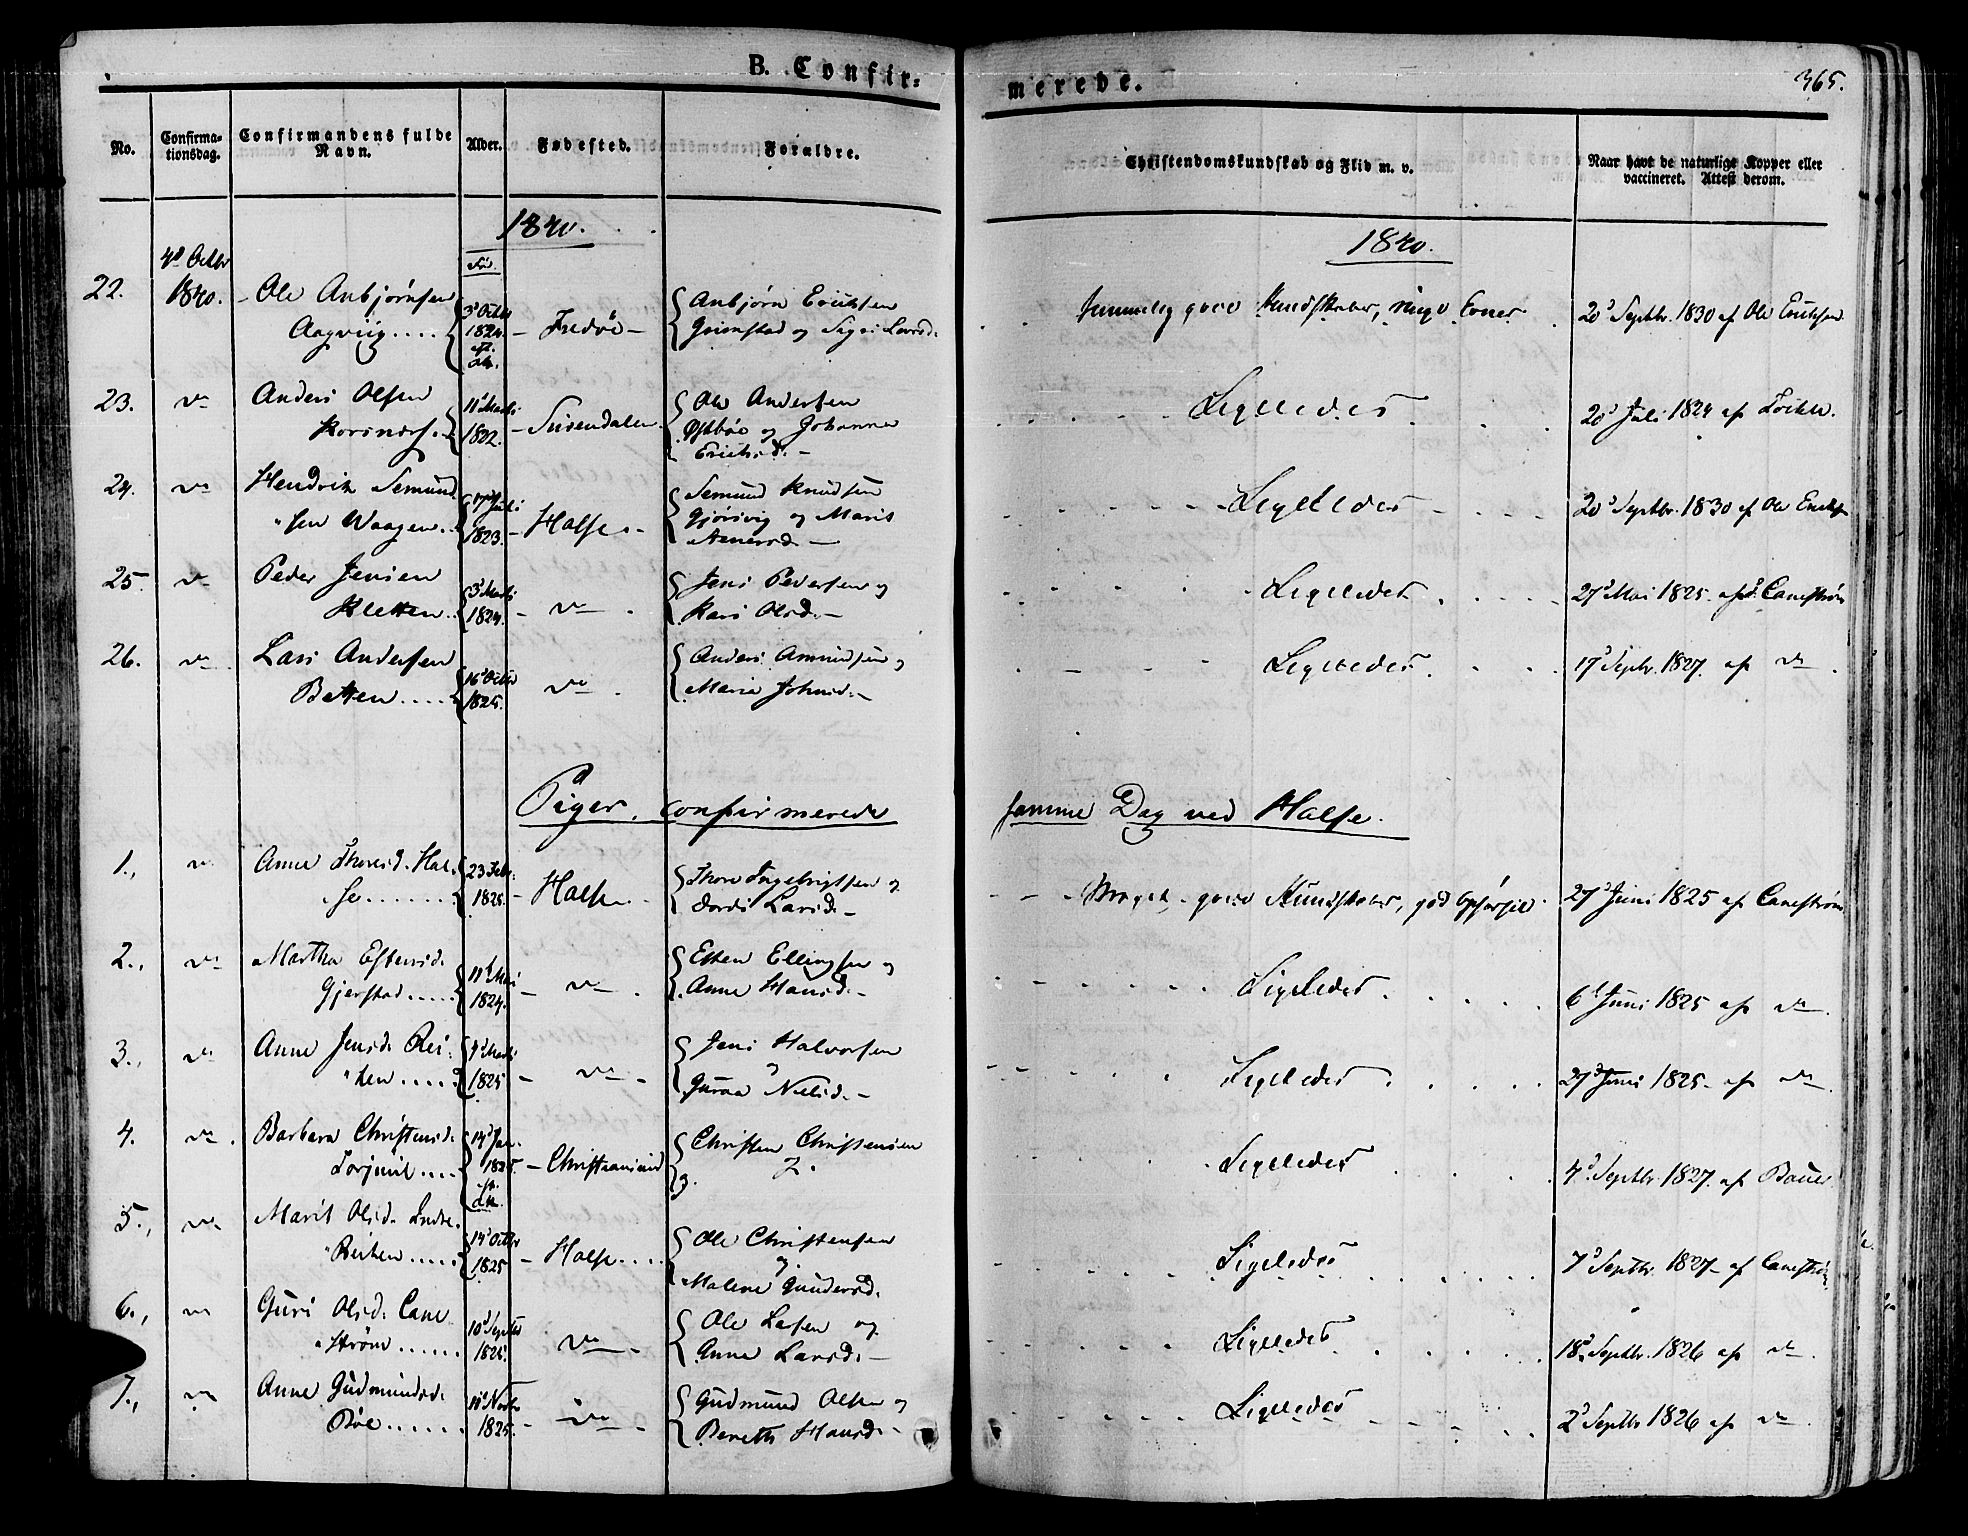 B. Confir=
merede.
365.
No.
Confirma-
tionsdag.
Confirmandens fulde
Navn.
Alder.
Fødested.
Forældre.
Christendomskundskab og Flid m. v.
Naar havt de naturlige Kopper eller
vaccineret. Attest derom.
1840.
1840.
22.
4d Octbr
1840.
Ole Anbjørnsen
Aagviig.....
3d Octbr
1824
Fredøe
Anbjørn Ericksen
Grimstad og Sigri Larsd.
Temmelig gode Kundskaber, ringe Evner
20d Septbr. 1830 af Ole Ericksen
23.
do
Anders Olsen
Korsnæs.
11d Marti
1822.
Surendalen
Ole Andersen
Østbøe og Johanna
Ericksd.
Ligeledes
20d Juli 1824 af
24.
do
Hendrik Semund
"sen Waagen..
17d Juli
1823.
Halse
Semund Knudsen
Gjørsvig og Marit
Ligeledes
20d Septbr. 1830 af Ole Ericks
25.
do
Peder Jensen
Kletten..
3d Marti
1824.
do
Jens Pedersen og
Kari Olsd.
Ligeledes
27d Mai 1825. af Canestrøm
26.
do
Lars Andersen
Betten.....
16d Octbr
1825.
do
Anders Amundsen og
Marie Johnsd.
Ligeledes
17d Septbr. 1827. af do
Piger, confirmerede
samme Dag ved Halse.
1.,
do
Anne Thoresd. Hal-
se......
23 Febr.
1825.
Halse
Thore Ingebrigtsen og
Dordi Larsd.
Meget gode Kundskaber, god Opførsel
27d Juni 1825 af Canestrøm
2.,
do
Martha Estensd.
Gjerstad.....
11d Mai
1824.
do
Esten Ellingsen og
Anne Hansd.
Ligeledes
6d Juni 1825 af do
3.,
do
Anne Jensd. Rei-
"ten.....
4d Marti
1825
do
Jens Halvorsen
Guroe Nielsd.
Ligeledes
27d Juni 1825 af do
4.
do
Barbara Christensd.
Torjevit....
14d Jan.
1825.
Christiansund
Christen Christensen
Ligeledes
4d Septbr. 1827. af Bauer
5.,
do
Marit Olsd. Indre
"Reiten.....
14d Octbr
1825
Halse....
Ole Christensen
og
Malene Gundersd.
Ligeledes
7d Septbr. 1827 af Canestrøm
6.,
do
Guri Olsd. Cane
"strøm......
10d Septbr
1825.
do
Ole Larsen og
Anne Larsd.
Ligeledes
18d Septbr. 1826 af do
7.,
do
Anne Gudmundsd.
Bøe......
11d Novbr
1825.
do
Gudmund Olsen og
Bereth Hansd.
Ligeledes
2d Septbr 1826 af do